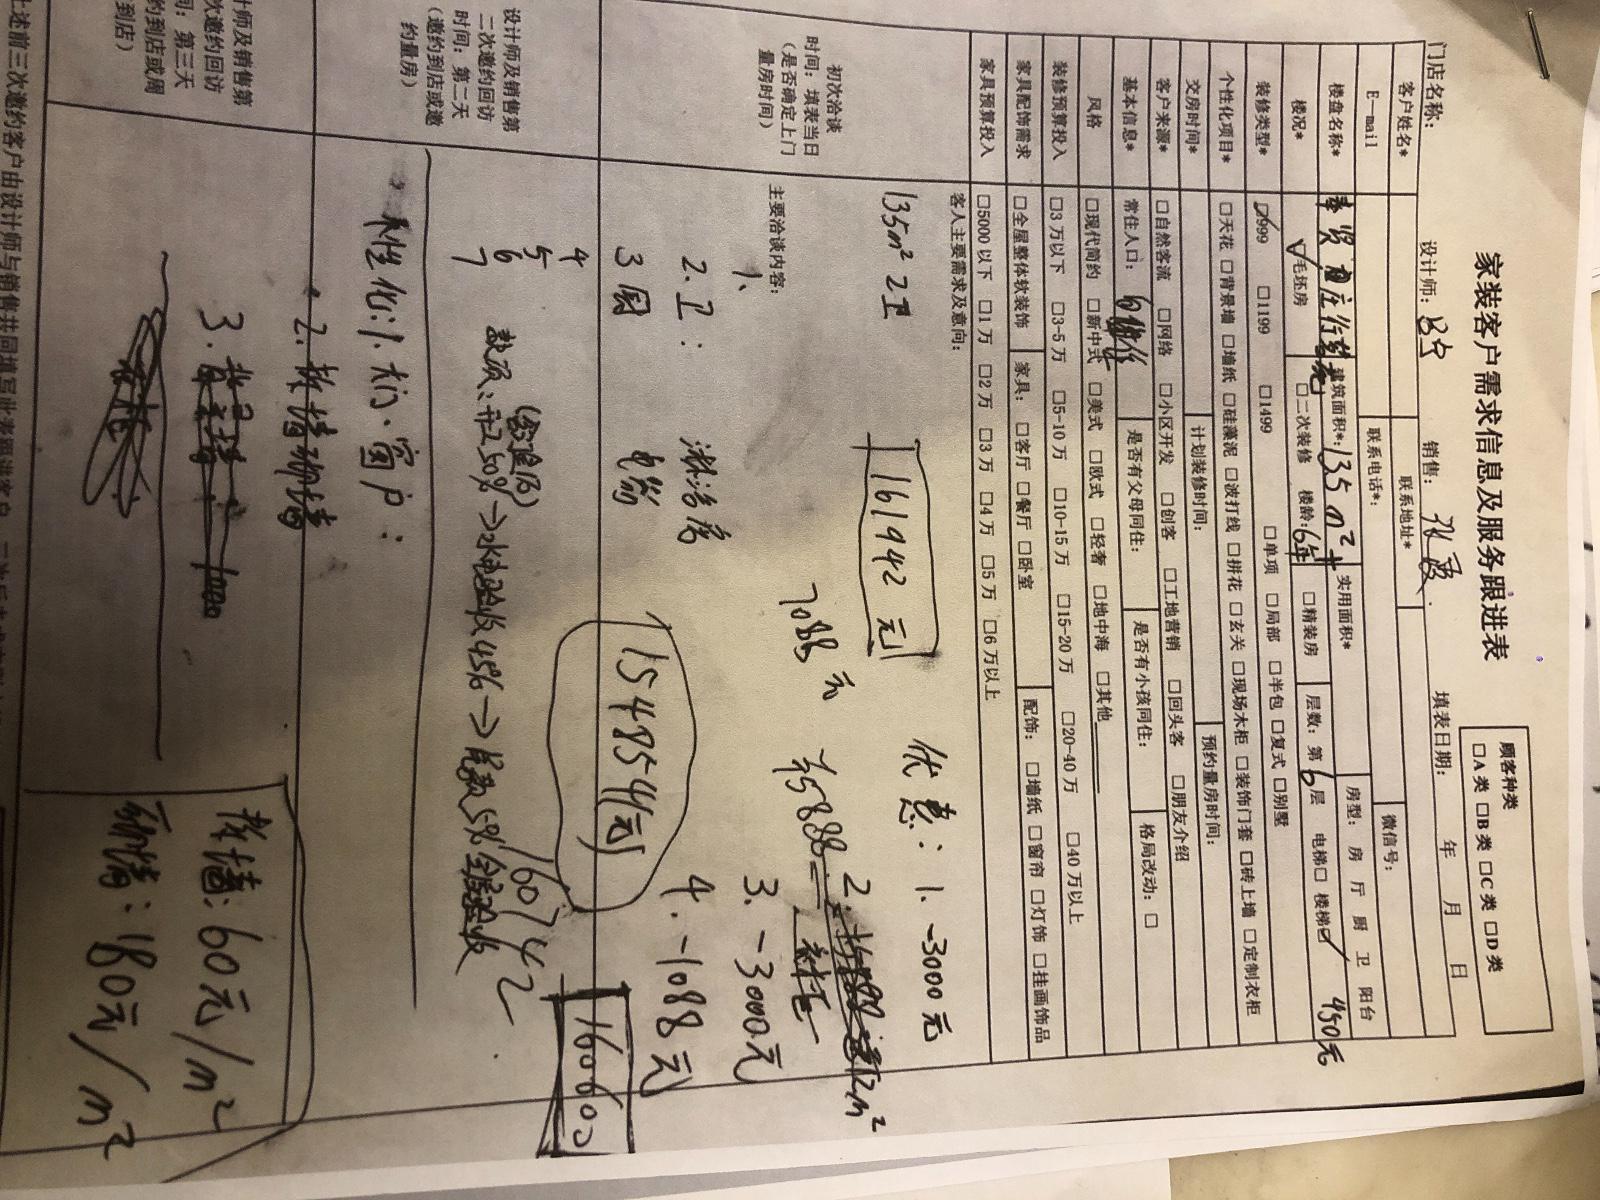 家装客户需求信息及服务跟进表
顾客种类
□A 类 □B 类 □C 类 □D 类
门店名称： 设计师： 销售： 填表日期： 年 月 日
客户姓名* 联系地址*
E-mail 联系电话*： 微信号：
楼盘名称* 建筑面积*：135m² 实用面积* 房型： 房 厅 厨 卫 阳台
楼况* ☑毛坯房 □二次装修 楼龄：6年 □精装房 层数：第6层 电梯□ 楼梯☑ 450元
装修类型* ☑999 □1199 □1499 □单项 □局部 □半包 □复式 □别墅
个性化项目* □天花 □背景墙 □墙纸 □硅藻泥 □波打线 □拼花 □玄关 □现场木柜 □装饰门套 □砖上墙 □定制衣柜
交房时间* 计划装修时间： 预约量房时间：
客户来源* □自然客流 □网络 □小区开发 □创客 □工地营销 □回头客 □朋友介绍
基本信息* 常住人口： 是否有父母同住： 是否有小孩同住： 格局改动：□
风格 □现代简约 □新中式 □美式 □欧式 □轻奢 □地中海 □其他
装修预算投入 □3 万以下 □3-5 万 □5-10 万 □10-15 万 □15-20 万 □20-40 万 □40 万以上
家具配饰需求 □全屋整体软装饰 家具：□客厅 □餐厅 □卧室 配饰：□墙纸 □窗帘 □灯饰 □挂画饰品
家具预算投入 □5000 以下 □1 万 □2 万 □3 万 □4 万 □5 万 □6 万以上
客人主要需求及意向：
135m² 2卫 161942 元 优惠：1. -3000元
初次洽谈
时间：填表当日
（是否确定上门
量房时间）
主要洽谈内容：
7088元
1、 3. -3000元
2. 卫： 4. -1088元
3 厨
154854元
4
5
6
7
160742
160600
设计师及销售第
二次邀约回访
时间：第二天
（邀约到店或邀
约量房）
款项：开工50%→水电验收45%→尾款5%
个性化：1. 大门、窗户：
2. 拆墙砌墙
计师及销售第
次邀约回访
间：第三天
约到店或周
到店）
3. 1000
拆墙：60元/m²
砌墙：180元/m²
上述前三次邀约客户由设计师与销售共同填写此表跟进客户